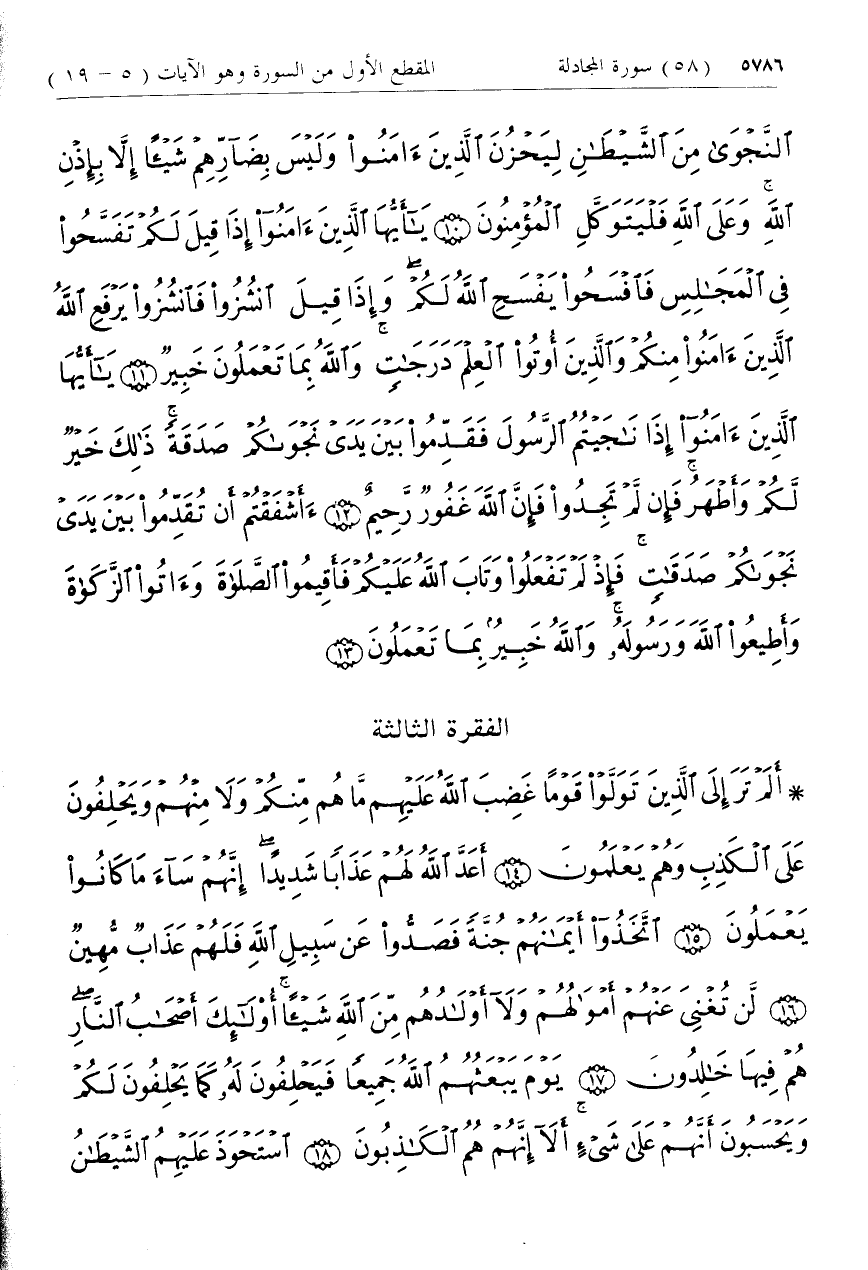 ٥٧٨٦ (٥٨) سورة المجادلة المقطع الأول من السورة وهو الآيات (٥ - ١٩)
ٱلنَّجْوَىٰ مِنَ ٱلشَّيْطَٰنِ لِيَحْزُنَ ٱلَّذِينَ ءَامَنُوا۟ وَلَيْسَ بِضَآرِّهِمْ شَيْـًٔا إِلَّا بِإِذْنِ
ٱللَّهِ ۚ وَعَلَى ٱللَّهِ فَلْيَتَوَكَّلِ ٱلْمُؤْمِنُونَ ١٠ يَٰٓأَيُّهَا ٱلَّذِينَ ءَامَنُوٓا۟ إِذَا قِيلَ لَكُمْ تَفَسَّحُوا۟
فِى ٱلْمَجَٰلِسِ فَٱفْسَحُوا۟ يَفْسَحِ ٱللَّهُ لَكُمْ ۖ وَإِذَا قِيلَ ٱنشُزُوا۟ فَٱنشُزُوا۟ يَرْفَعِ ٱللَّهُ
ٱلَّذِينَ ءَامَنُوا۟ مِنكُمْ وَٱلَّذِينَ أُوتُوا۟ ٱلْعِلْمَ دَرَجَٰتٍ ۚ وَٱللَّهُ بِمَا تَعْمَلُونَ خَبِيرٌ ١١ يَٰٓأَيُّهَا
ٱلَّذِينَ ءَامَنُوٓا۟ إِذَا نَٰجَيْتُمُ ٱلرَّسُولَ فَقَدِّمُوا۟ بَيْنَ يَدَىْ نَجْوَىٰكُمْ صَدَقَةً ۚ ذَٰلِكَ خَيْرٌ
لَّكُمْ وَأَطْهَرُ ۚ فَإِن لَّمْ تَجِدُوا۟ فَإِنَّ ٱللَّهَ غَفُورٌ رَّحِيمٌ ١٢ ءَأَشْفَقْتُمْ أَن تُقَدِّمُوا۟ بَيْنَ يَدَىْ
نَجْوَىٰكُمْ صَدَقَٰتٍ ۚ فَإِذْ لَمْ تَفْعَلُوا۟ وَتَابَ ٱللَّهُ عَلَيْكُمْ فَأَقِيمُوا۟ ٱلصَّلَوٰةَ وَءَاتُوا۟ ٱلزَّكَوٰةَ
وَأَطِيعُوا۟ ٱللَّهَ وَرَسُولَهُۥ ۚ وَٱللَّهُ خَبِيرٌۢ بِمَا تَعْمَلُونَ ١٣
الفقرة الثالثة
* أَلَمْ تَرَ إِلَى ٱلَّذِينَ تَوَلَّوْا۟ قَوْمًا غَضِبَ ٱللَّهُ عَلَيْهِم مَّا هُم مِّنكُمْ وَلَا مِنْهُمْ وَيَحْلِفُونَ
عَلَى ٱلْكَذِبِ وَهُمْ يَعْلَمُونَ ١٤ أَعَدَّ ٱللَّهُ لَهُمْ عَذَابًا شَدِيدًا ۖ إِنَّهُمْ سَآءَ مَا كَانُوا۟
يَعْمَلُونَ ١٥ ٱتَّخَذُوٓا۟ أَيْمَٰنَهُمْ جُنَّةً فَصَدُّوا۟ عَن سَبِيلِ ٱللَّهِ فَلَهُمْ عَذَابٌ مُّهِينٌ
١٦ لَّن تُغْنِىَ عَنْهُمْ أَمْوَٰلُهُمْ وَلَآ أَوْلَٰدُهُم مِّنَ ٱللَّهِ شَيْـًٔا ۚ أُو۟لَٰٓئِكَ أَصْحَٰبُ ٱلنَّارِ ۖ
هُمْ فِيهَا خَٰلِدُونَ ١٧ يَوْمَ يَبْعَثُهُمُ ٱللَّهُ جَمِيعًا فَيَحْلِفُونَ لَهُۥ كَمَا يَحْلِفُونَ لَكُمْ
وَيَحْسَبُونَ أَنَّهُمْ عَلَىٰ شَىْءٍ ۚ أَلَآ إِنَّهُمْ هُمُ ٱلْكَٰذِبُونَ ١٨ ٱسْتَحْوَذَ عَلَيْهِمُ ٱلشَّيْطَٰنُ